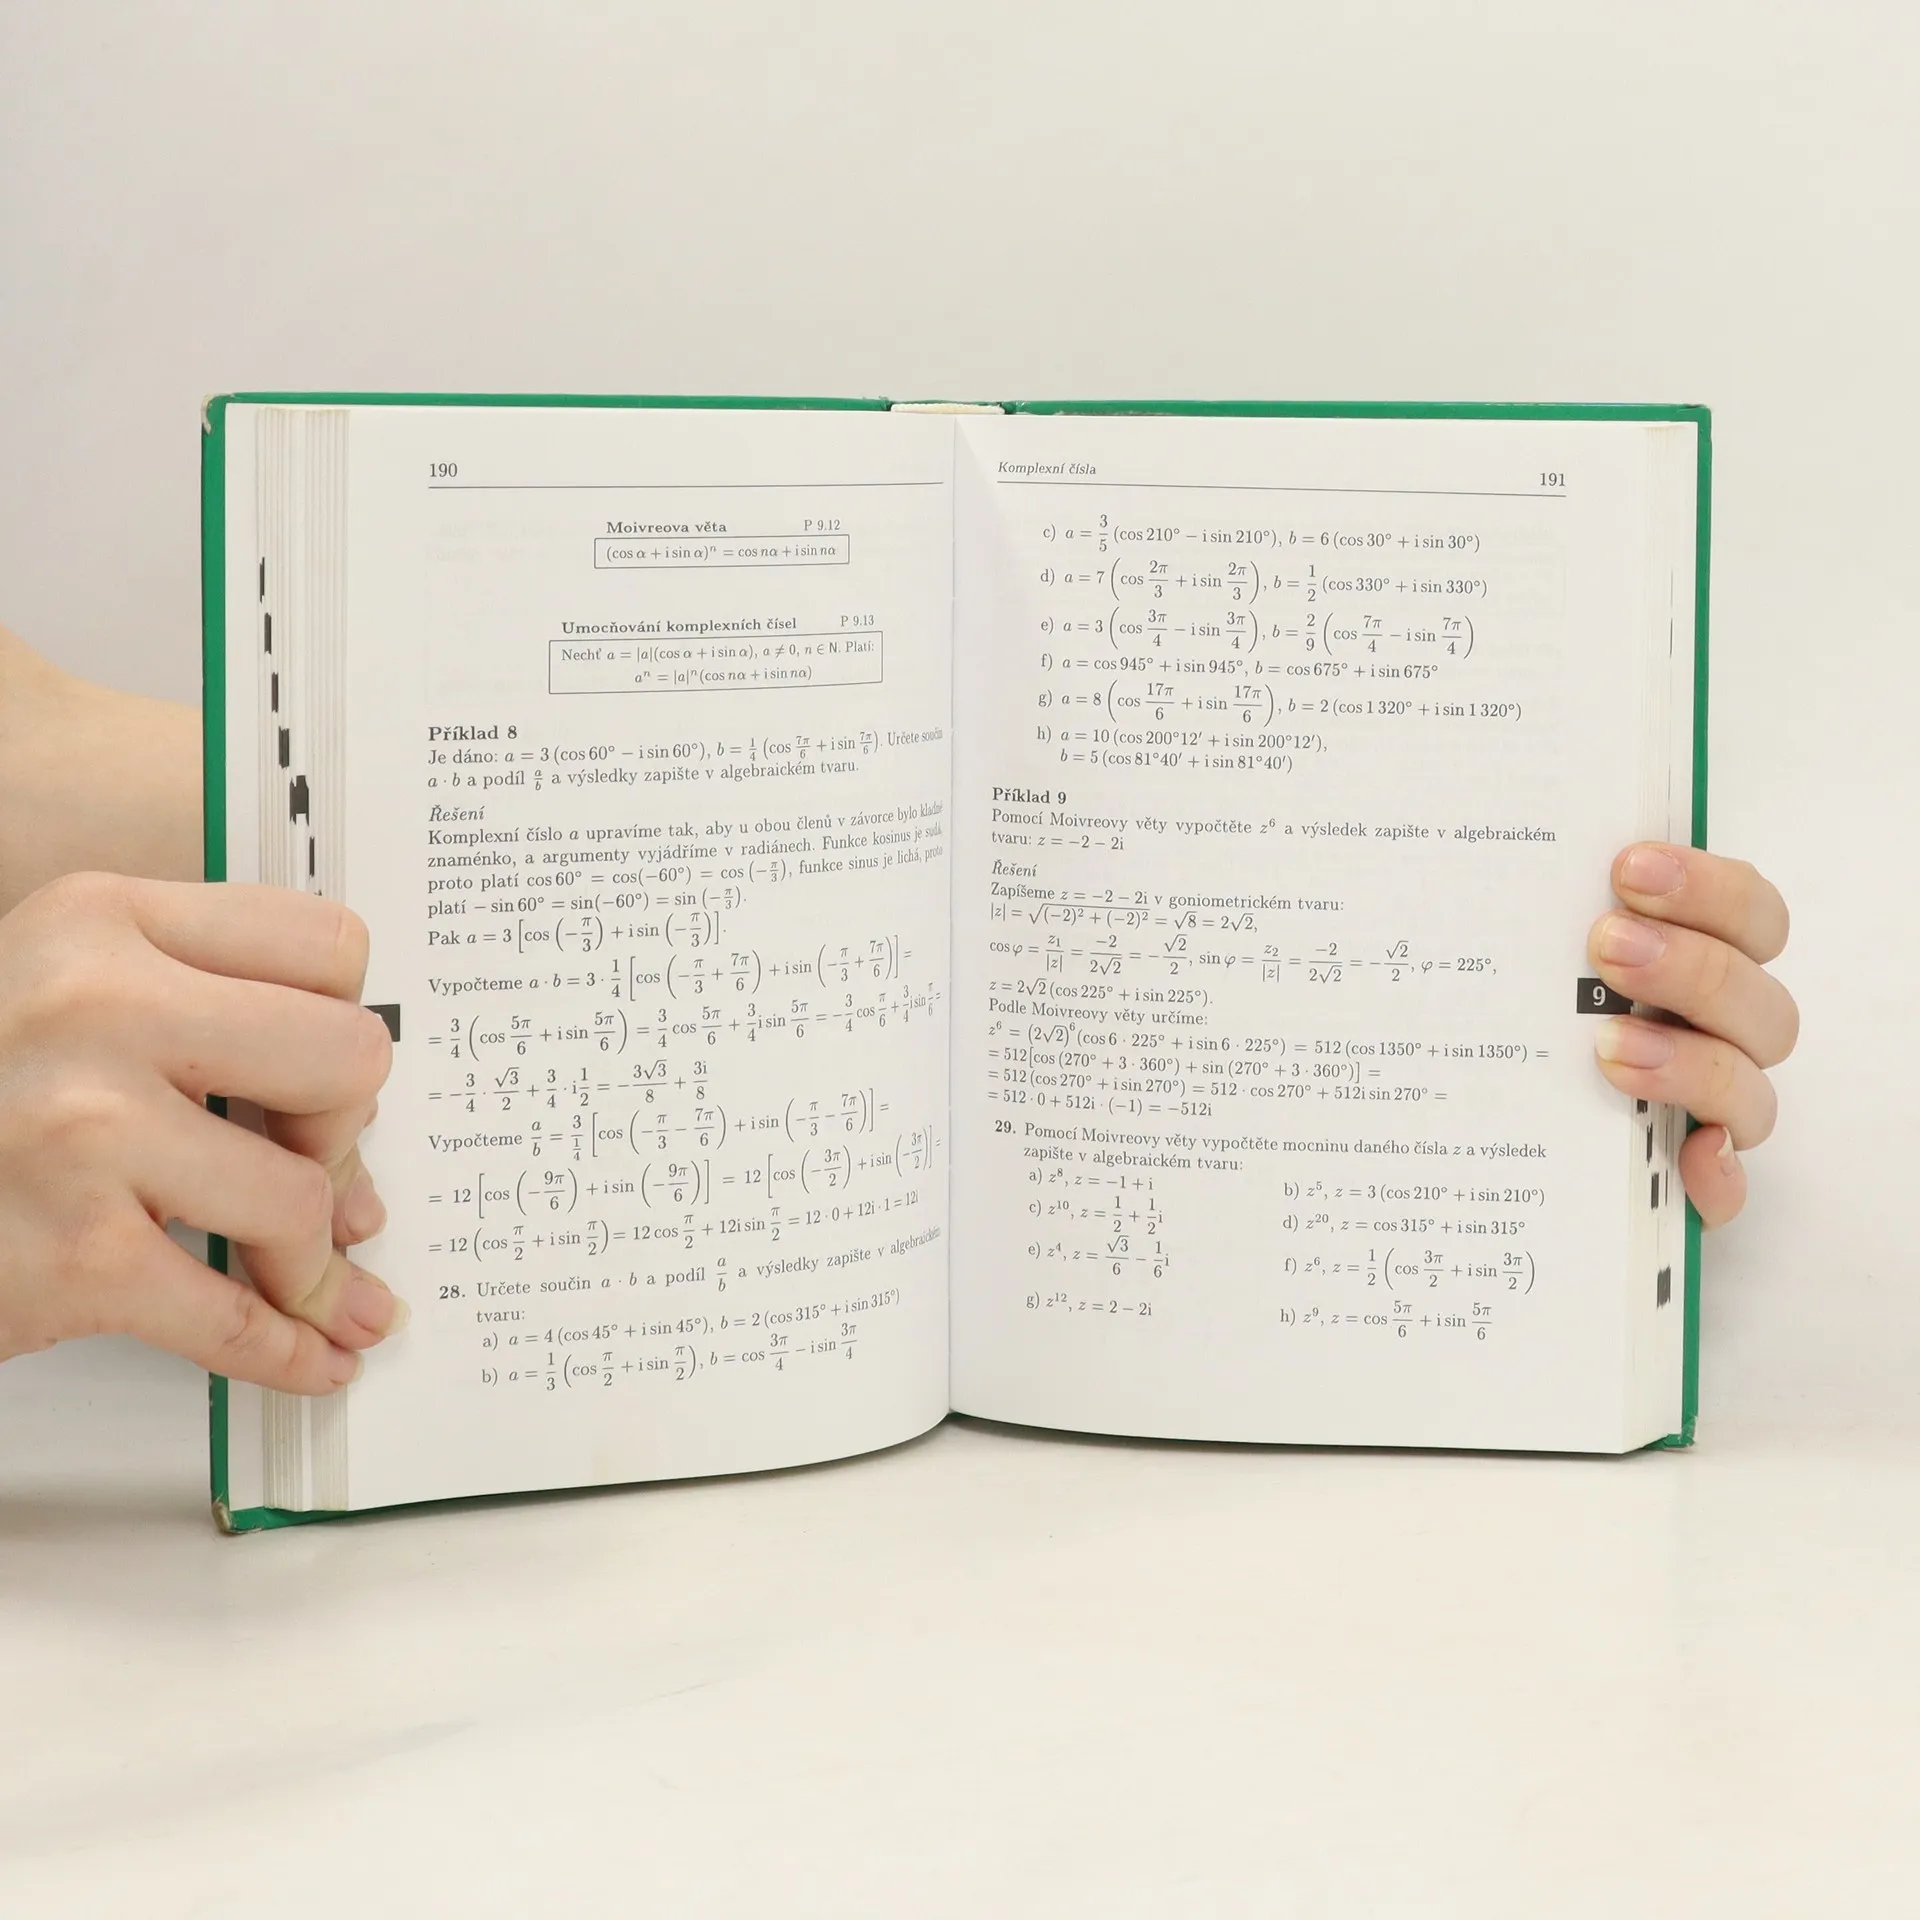 190
Moivreova věta P 9.12
(cos α + i sin α)ⁿ = cos nα + i sin nα
Umocňování komplexních čísel P 9.13
Nechť a = |a|(cos α + i sin α), a ≠ 0, n ∈ N. Platí:
aⁿ = |a|ⁿ (cos nα + i sin nα)
Příklad 8
Je dáno: a = 3 (cos 60° − i sin 60°), b = 1/4 (cos 7π/6 + i sin 7π/6). Určete součin
a · b a podíl a/b a výsledky zapište v algebraickém tvaru.
Řešení
Komplexní číslo a upravíme tak, aby u obou členů v závorce bylo kladné
znaménko, a argumenty vyjádříme v radiánech. Funkce kosinus je sudá,
proto platí cos 60° = cos(−60°) = cos (−π/3), funkce sinus je lichá, proto
platí − sin 60° = sin(−60°) = sin (−π/3).
Pak a = 3 [cos (−π/3) + i sin (−π/3)].
Vypočteme a · b = 3 · 1/4 [cos (−π/3 + 7π/6) + i sin (−π/3 + 7π/6)] =
= 3/4 (cos 5π/6 + i sin 5π/6) = 3/4 cos 5π/6 + 3/4 i sin 5π/6 = −3/4 cos π/6 + 3/4 i sin π/6 =
= −3/4 · √3/2 + 3/4 · i 1/2 = −3√3/8 + 3i/8
Vypočteme a/b = 3/(1/4) [cos (−π/3 − 7π/6) + i sin (−π/3 − 7π/6)] =
= 12 [cos (−9π/6) + i sin (−9π/6)] = 12 [cos (−3π/2) + i sin (−3π/2)] =
= 12 (cos π/2 + i sin π/2) = 12 cos π/2 + 12i sin π/2 = 12 · 0 + 12i · 1 = 12i
28. Určete součin a · b a podíl a/b a výsledky zapište v algebraickém
tvaru:
a) a = 4 (cos 45° + i sin 45°), b = 2 (cos 315° + i sin 315°)
b) a = 1/3 (cos π/2 + i sin π/2), b = cos 3π/4 − i sin 3π/4
Komplexní čísla 191
c) a = 3/5 (cos 210° − i sin 210°), b = 6 (cos 30° + i sin 30°)
d) a = 7 (cos 2π/3 + i sin 2π/3), b = 1/2 (cos 330° + i sin 330°)
e) a = 3 (cos 3π/4 − i sin 3π/4), b = 2/9 (cos 7π/4 − i sin 7π/4)
f) a = cos 945° + i sin 945°, b = cos 675° + i sin 675°
g) a = 8 (cos 17π/6 + i sin 17π/6), b = 2 (cos 1 320° + i sin 1 320°)
h) a = 10 (cos 200°12′ + i sin 200°12′),
b = 5 (cos 81°40′ + i sin 81°40′)
Příklad 9
Pomocí Moivreovy věty vypočtěte z⁶ a výsledek zapište v algebraickém
tvaru: z = −2 − 2i
Řešení
Zapíšeme z = −2 − 2i v goniometrickém tvaru:
|z| = √((−2)² + (−2)²) = √8 = 2√2,
cos φ = z₁/|z| = −2/(2√2) = −√2/2, sin φ = z₂/|z| = −2/(2√2) = −√2/2, φ = 225°,
z = 2√2 (cos 225° + i sin 225°).
Podle Moivreovy věty určíme:
z⁶ = (2√2)⁶ (cos 6 · 225° + i sin 6 · 225°) = 512 (cos 1350° + i sin 1350°) =
= 512 [cos (270° + 3 · 360°) + sin (270° + 3 · 360°)] =
= 512 (cos 270° + i sin 270°) = 512 · cos 270° + 512i sin 270° =
= 512 · 0 + 512i · (−1) = −512i
29. Pomocí Moivreovy věty vypočtěte mocninu daného čísla z a výsledek
zapište v algebraickém tvaru:
a) z⁸, z = −1 + i b) z⁵, z = 3 (cos 210° + i sin 210°)
c) z¹⁰, z = 1/2 + 1/2 i d) z²⁰, z = cos 315° + i sin 315°
e) z⁴, z = √3/6 − 1/6 i f) z⁶, z = 1/2 (cos 3π/2 + i sin 3π/2)
g) z¹², z = 2 − 2i h) z⁹, z = cos 5π/6 + i sin 5π/6
9